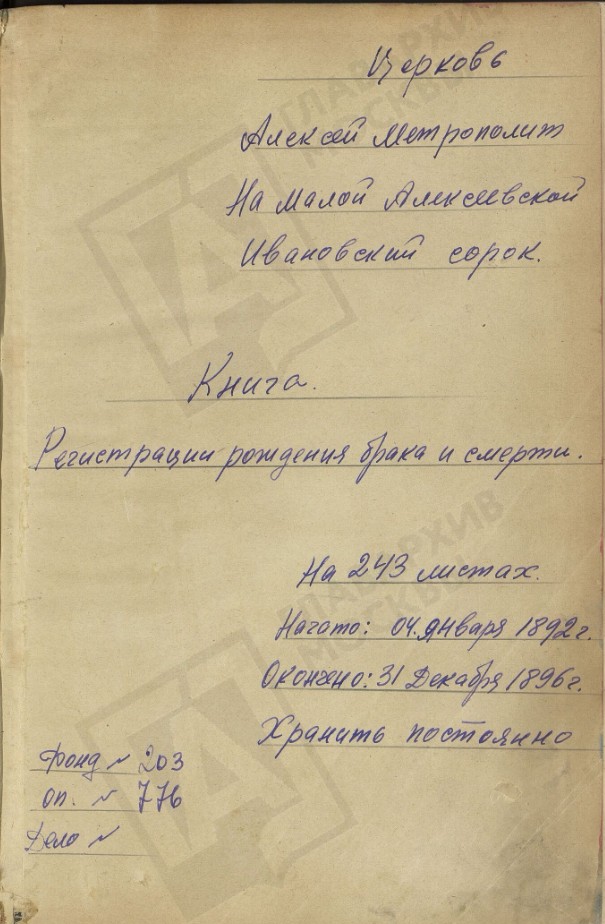 Церковь
Алексей Метрополит
На малой Алексеевской
Ивановский сорок.
Книга.
Регистрации рождения брака и смерти.
На 243 листах.
Начато: 04. января 1892 г.
Окончено: 31 Декабря 1896 г.
Хранить постоянно
Фонд № 203
оп. № 776
Дело №
ГЛАВАРХИВ
МОСКВЫ
ГЛАВАРХИВ
МОСКВЫ